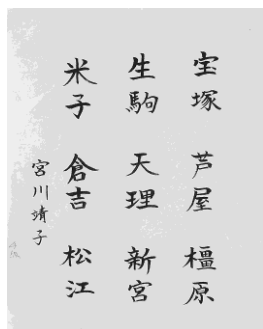 宝塚 芦屋 橿原
生駒 天理 新宮
米子 倉吉 松江
宮川靖子